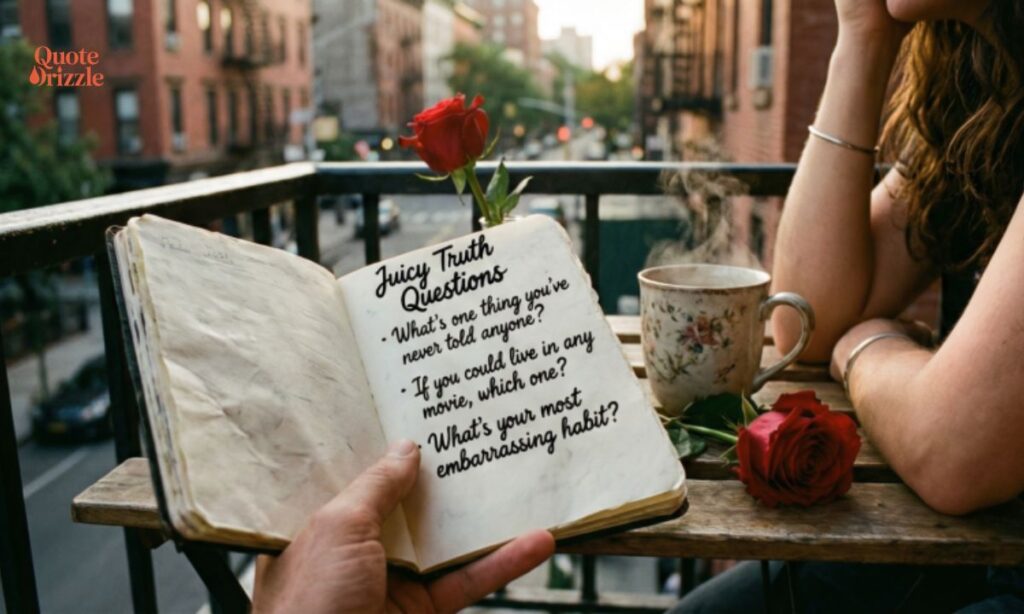 Quote
Drizzle
Juicy Truth
Questions
• What's one thing you've
never told anyone?
• If you could live in any
movie, which one?
• What's your most
embarrassing habit?